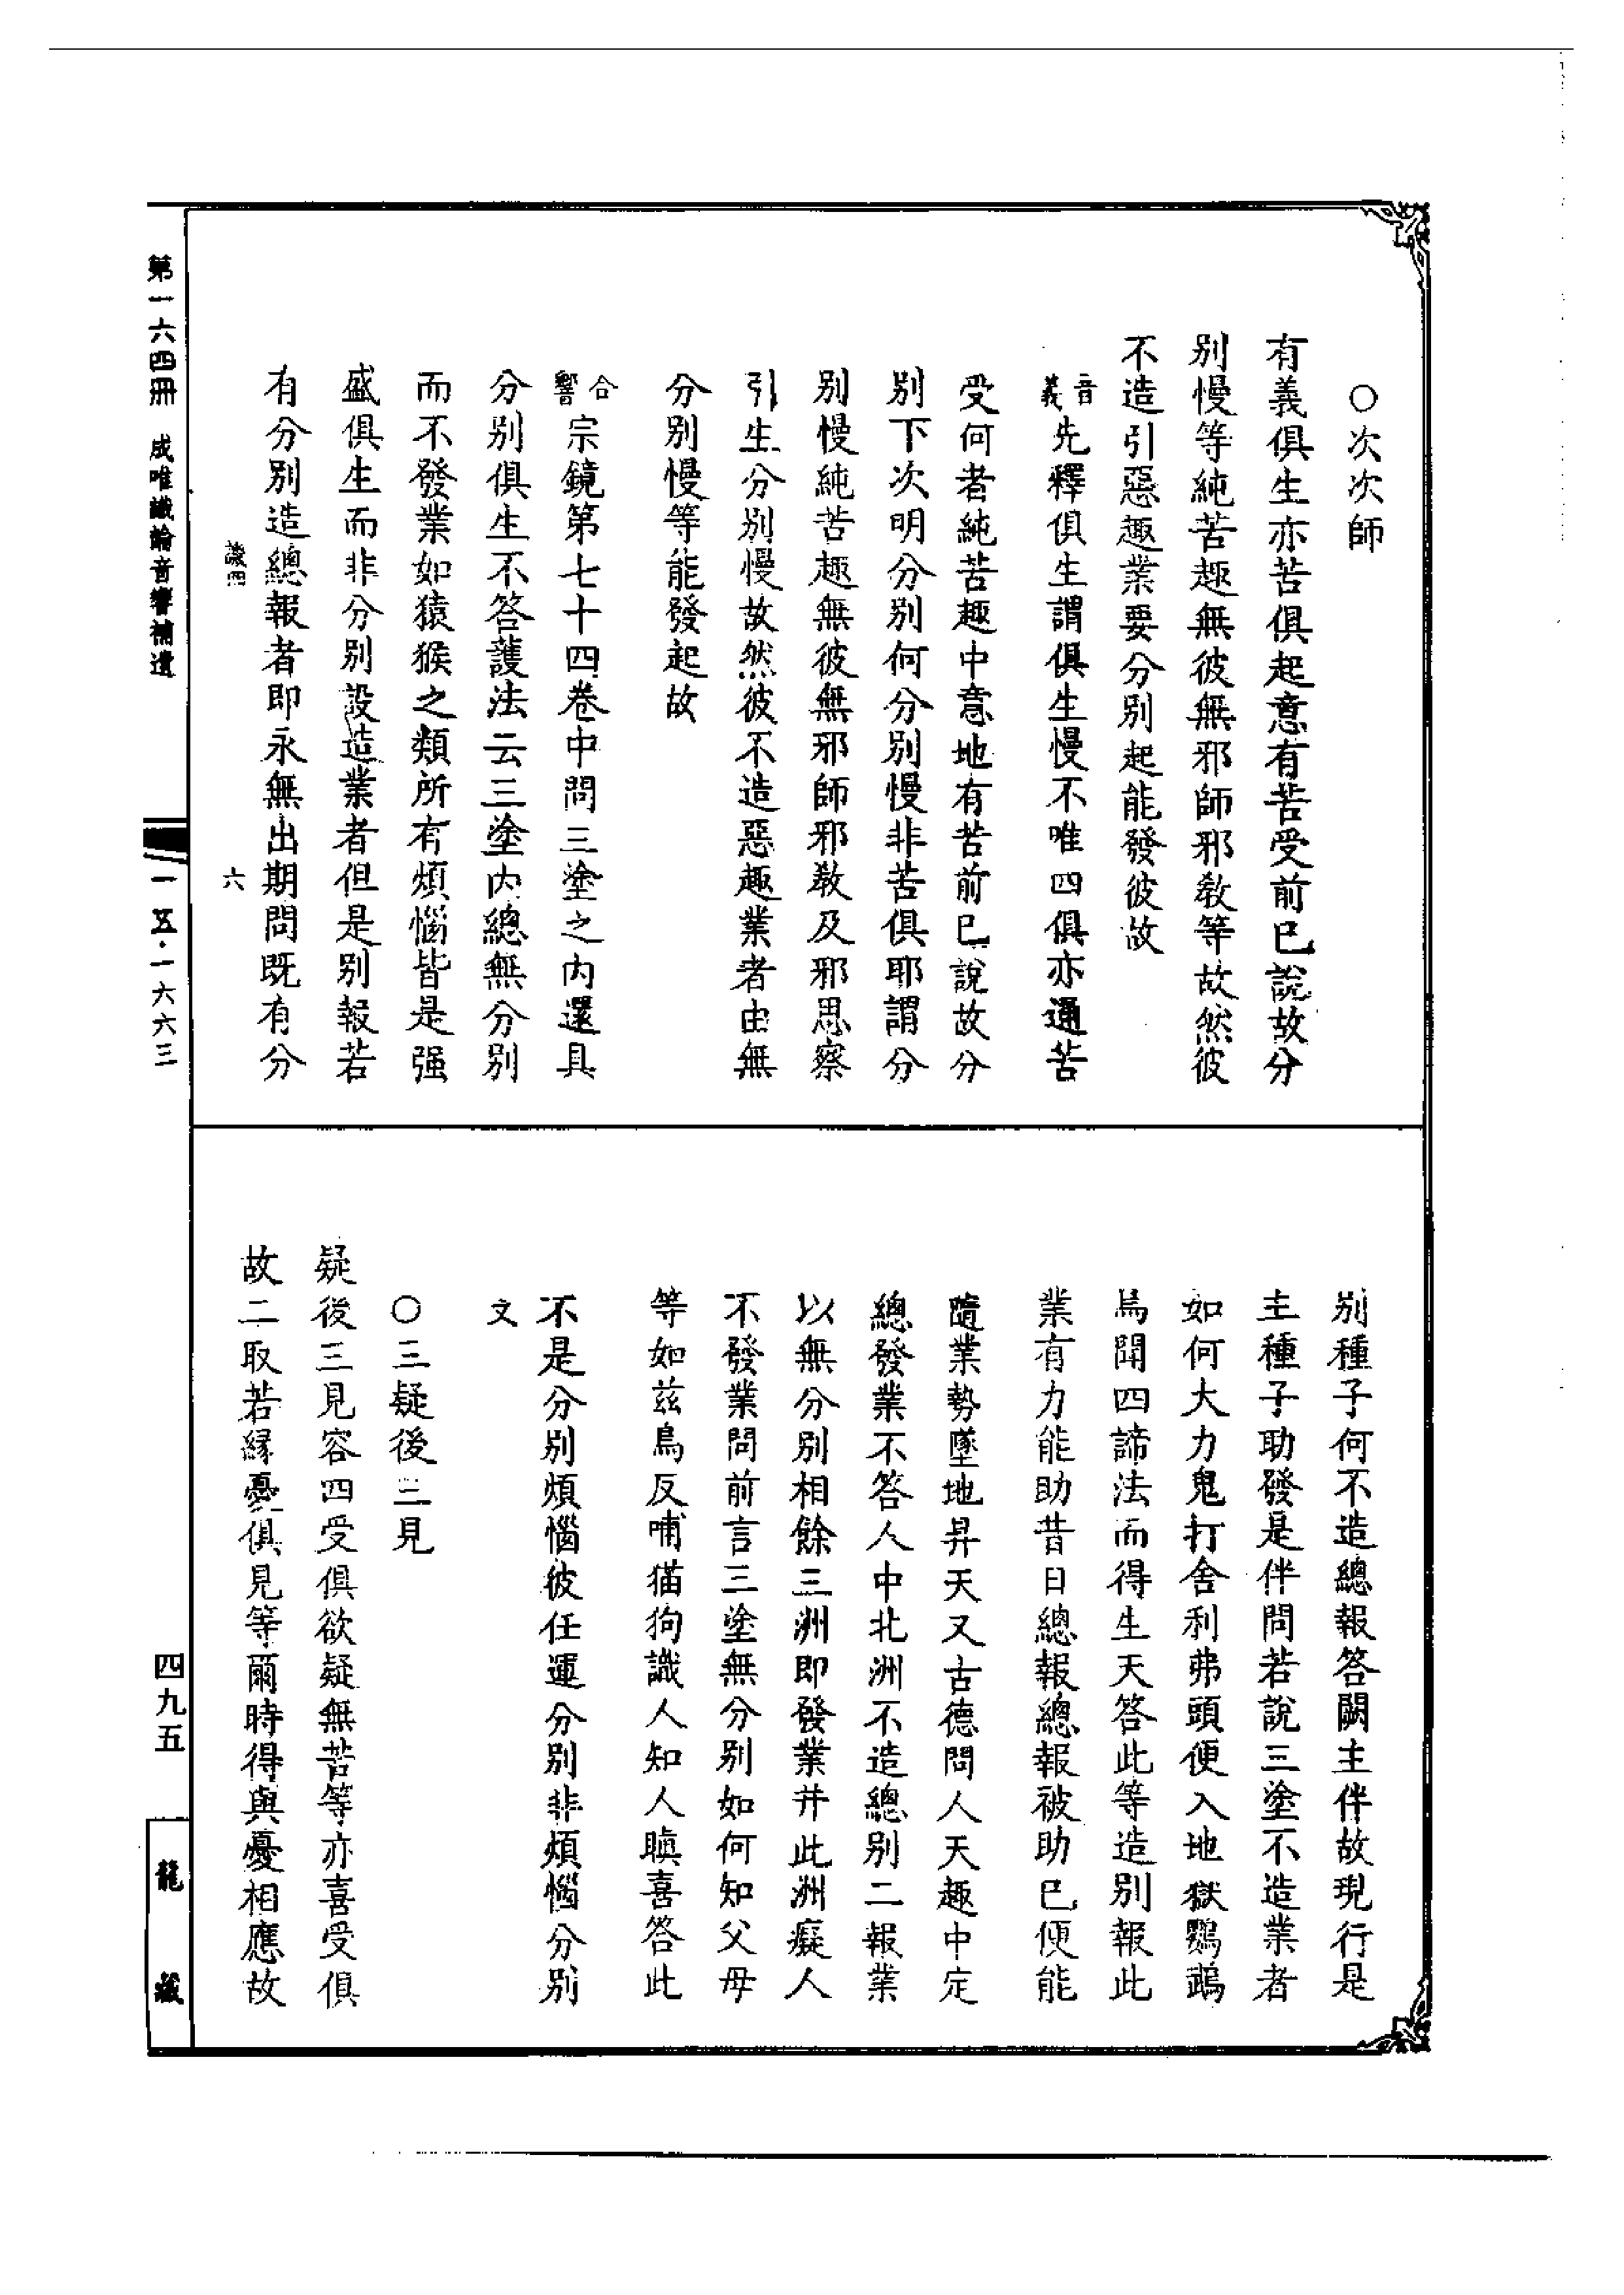 ○次次師
有義俱生亦苦俱起意有苦受前已說故分
別慢等純苦趣無彼無邪師邪教等故然彼
不造引惡趣業要分別起能發彼故
音義先釋俱生謂俱生慢不唯四俱亦通苦
受何者純苦趣中意地有苦前已說故分
別下次明分別何分別慢非苦俱耶謂分
別慢純苦趣無彼無邪師邪教及邪思察
引生分別慢故然彼不造惡趣業者由無
分別慢等能發起故
合響宗鏡第七十四卷中問三塗之內還具
分別俱生不答護法云三塗內總無分別
而不發業如猿猴之類所有煩惱皆是强
盛俱生而非分別設造業者但是別報若
有分別造總報者即永無出期問既有分
譏四 六
別種子何不造總報答闕主伴故現行是
主種子助發是伴問若說三塗不造業者
如何大力鬼打舍利弗頭便入地獄鸚鵡
烏聞四諦法而得生天答此等造別報此
業有力能助昔日總報總報被助已便能
隨業勢墜地昇天又古德問人天趣中定
總發業不答人中北洲不造總別二報業
以無分別相餘三洲即發業并此洲癡人
不發業問前言三塗無分別如何知父母
等如茲鳥反哺猫狗識人知人瞋喜答此
不是分別煩惱彼任運分別非煩惱分別
文
○三疑後三見
疑後三見容四受俱欲疑無苦等亦喜受俱
故二取若緣憂俱見等爾時得與憂相應故
第一六四冊 成唯識論音響補遺
一五·一六六三
四九五
龍藏